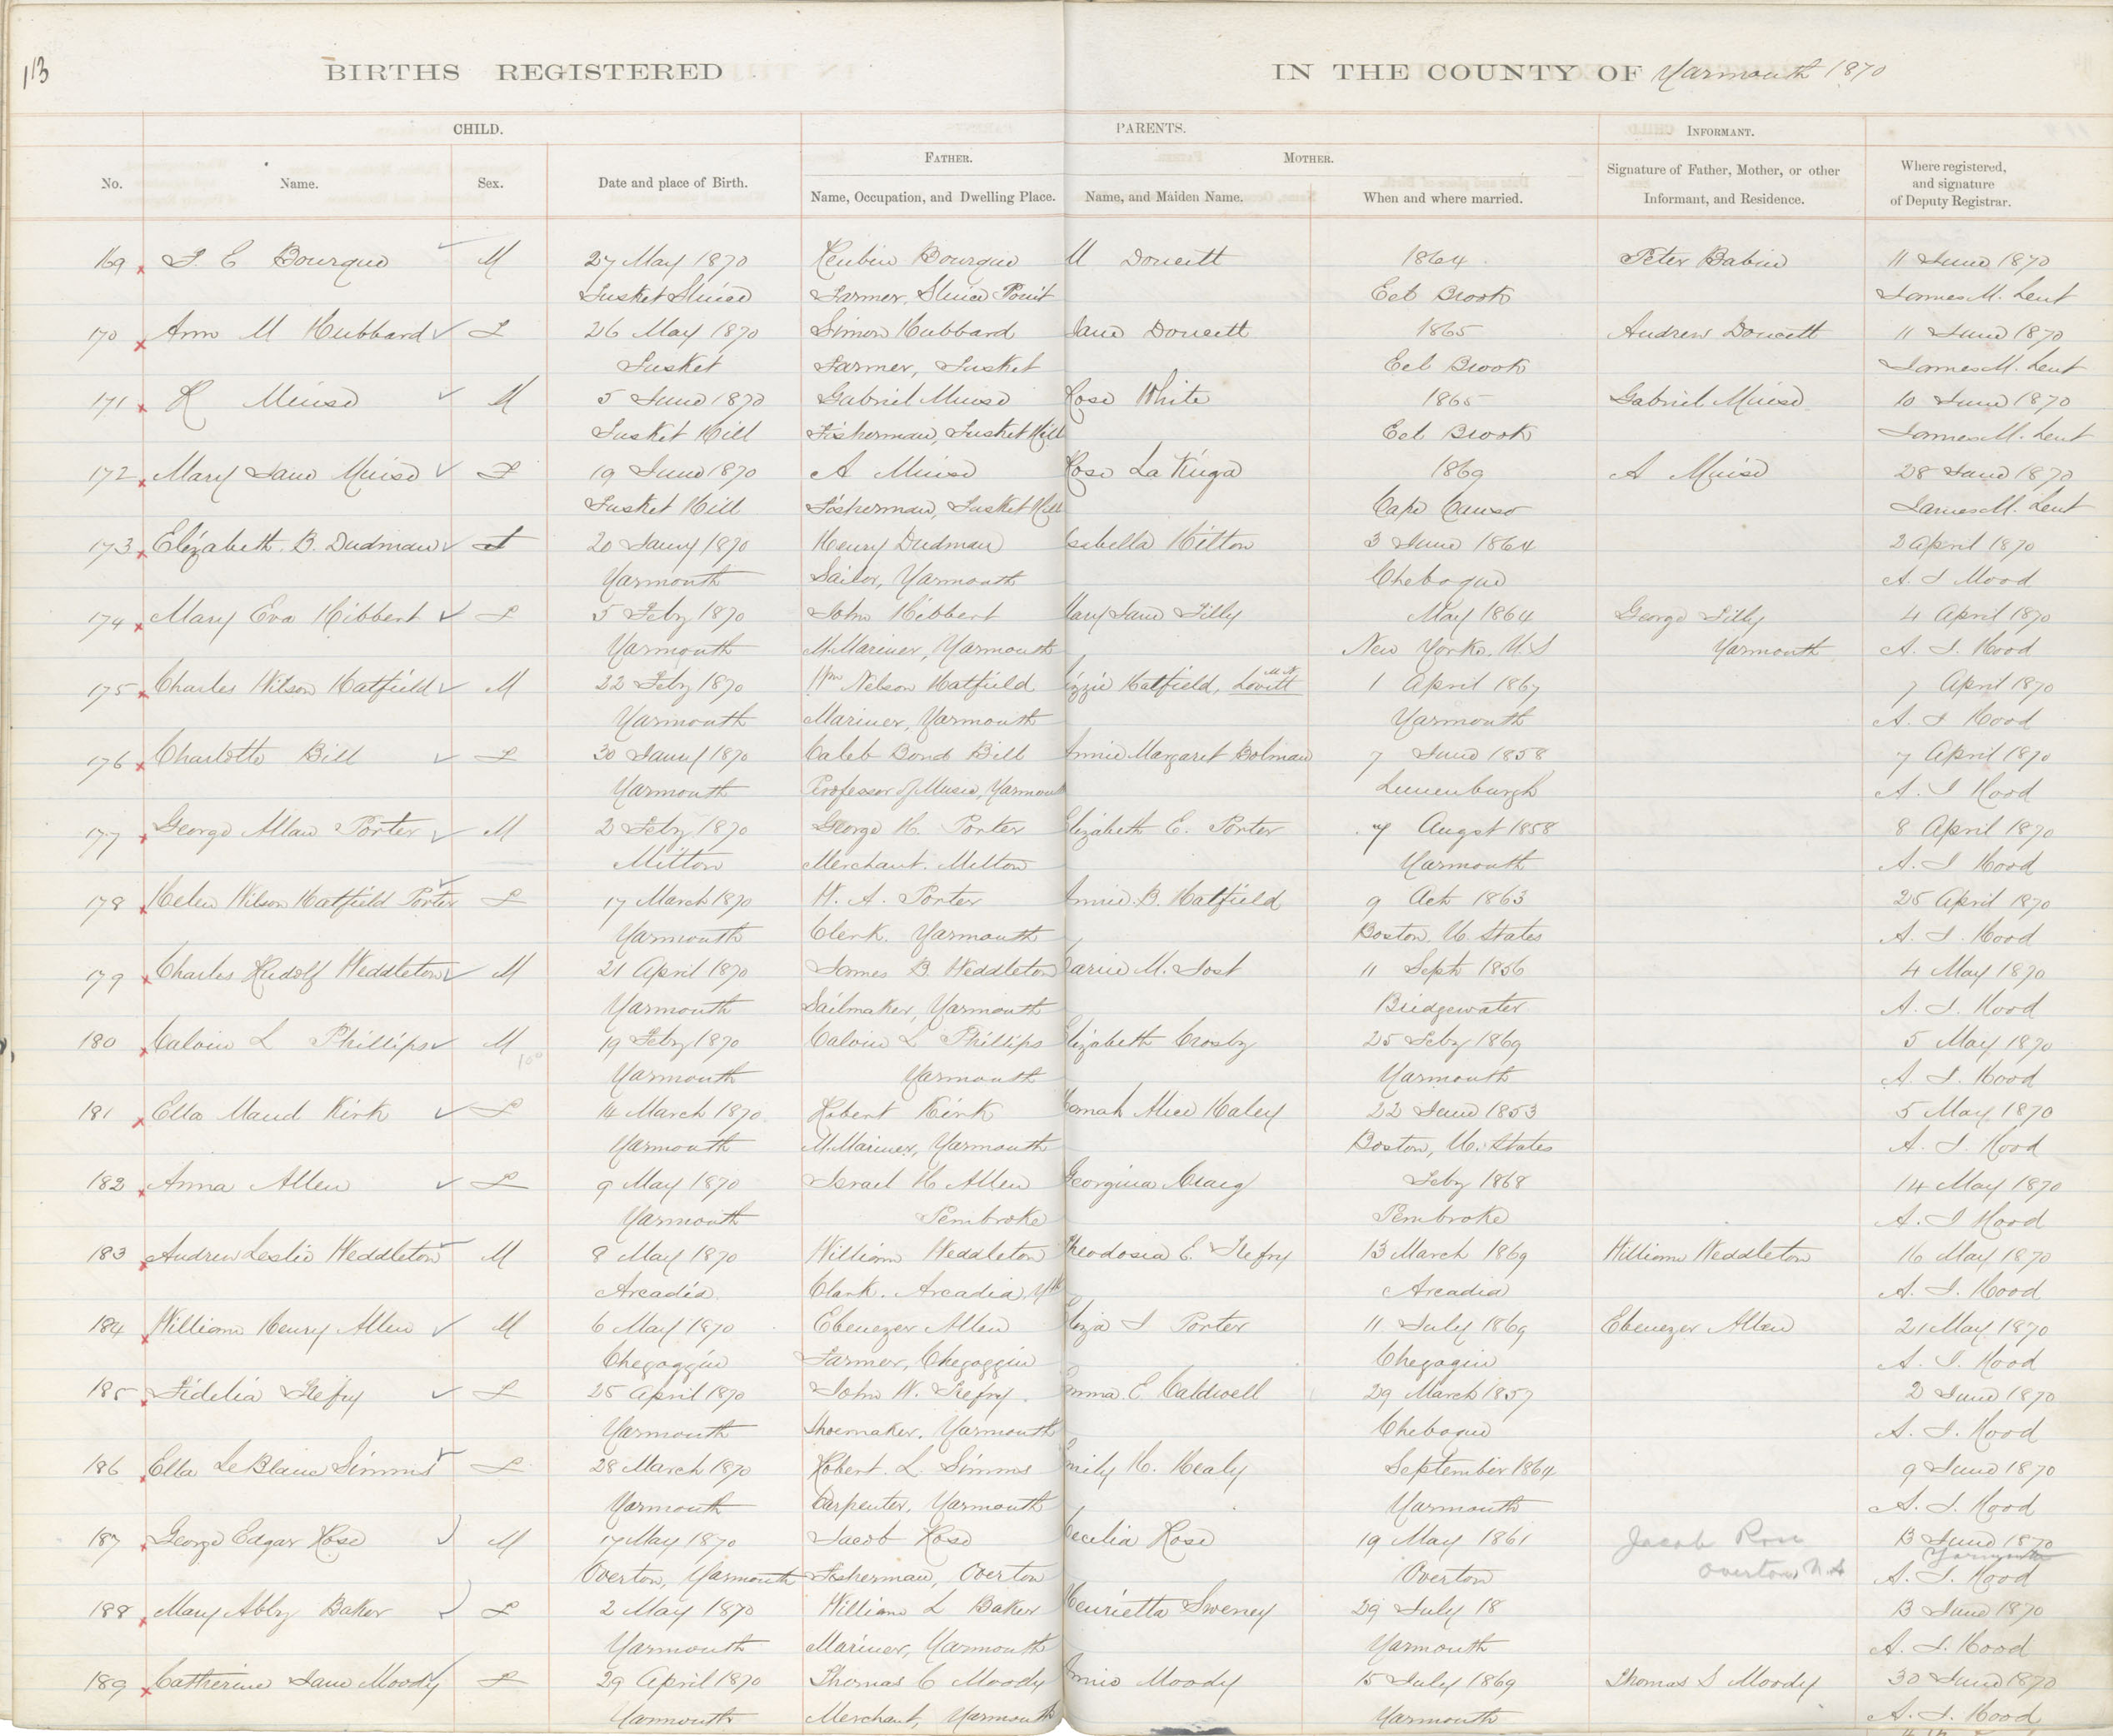 113
BIRTHS REGISTERED IN THE COUNTY OF Yarmouth 1870
CHILD. PARENTS. INFORMANT.
FATHER. MOTHER.
No. Name. Sex. Date and place of Birth. Name, Occupation, and Dwelling Place. Name, and Maiden Name. When and where married. Signature of Father, Mother, or other Informant, and Residence. Where registered, and signature of Deputy Registrar.
169 E Bourque M 27 May 1870 Reubin Bourque M Doucett 1864 Peter Babin 11 June 1870
Tusket Sluice Farmer, Sluice Point Eel Brook James M. Lent
170 Ann M Hubbard F 26 May 1870 Simon Hubbard Jane Doucett 1865 Andrew Doucett 11 June 1870
Tusket Farmer, Tusket Eel Brook James M. Lent
171 R Muise M 5 June 1870 Gabriel Muise Rose White 1865 Gabriel Muise 10 June 1870
Tusket Hill Fisherman, Tusket Hill Eel Brook James M. Lent
172 Mary Jane Muise F 19 June 1870 A Muise Rose La 1869 A Muise 28 June 1870
Tusket Hill Fisherman, Tusket Hill Cape Canso James M. Lent
173 Elizabeth B. Dudman F 20 Jany 1870 Henry Dudman Isabella Hilton 3 June 1864 2 April 1870
Yarmouth Sailor, Yarmouth Chebogue A. J Hood
174 Mary Eva Hibbert F 5 Feby 1870 John Hibbert Mary Jane Tilly May 1864 George Tilly 4 April 1870
Yarmouth M. Mariner, Yarmouth New York. U.S Yarmouth A. J. Hood
175 Charles Wilson Hatfield M 22 Feby 1870 Wm Nelson Hatfield Lizzie Hatfield, Lovitt 1 April 1867 7 April 1870
Yarmouth Mariner, Yarmouth Yarmouth A. J Hood
176 Charlotte Bill F 30 Jany 1870 Caleb Bond Bill Annie Margaret Bolman 7 June 1858 7 April 1870
Yarmouth Professor of Music, Yarmouth Lunenburgh A. J Hood
177 George Allan Porter M 2 Feby 1870 George H. Porter Elizabeth E. Porter 7 Augst 1858 8 April 1870
Milton Merchant. Milton Yarmouth A. J Hood
178 Helen Wilson Hatfield Porter F 17 March 1870 W. A. Porter Annie B. Hatfield 9 Oct 1863 25 April 1870
Yarmouth Clerk. Yarmouth Boston, U States A. J. Hood
179 Charles Rudolf Weddleton M 21 April 1870 James B. Weddleton Carrie M. Jost 11 Sept 1856 4 May 1870
Yarmouth Sailmaker, Yarmouth Bridgewater A. J. Hood
180 Calvin L Phillips M 19 Feby 1870 Calvin L Phillips Elizabeth Crosby 25 Feby 1869 5 May 1870
Yarmouth Yarmouth Yarmouth A. J. Hood
181 Ella Maud Kirk F 14 March 1870 Robert Kirk Hanah Alice Haley 22 June 1853 5 May 1870
Yarmouth M. Mariner, Yarmouth Boston, U. States A. J. Hood
182 Anna Allen F 9 May 1870 Israel H Allen Georgina Craig Feby 1868 14 May 1870
Yarmouth Pembroke Pembroke A. J Hood
183 Andrew Leslie Weddleton M 8 May 1870 William Weddleton Theodosia E. Trefry 13 March 1869 William Weddleton 16 May 1870
Arcadia Clark. Arcadia Yth Arcadia A. J. Hood
184 William Henry Allen M 6 May 1870 Ebenezer Allen Eliza J Porter 11 July 1869 Ebenezer Allen 21 May 1870
Chegoggin Farmer, Chegoggin Chegogin A. J. Hood
185 Fidelia Trefry F 25 April 1870 John W. Trefry Emma E Caldwell 29 March 1857 2 June 1870
Yarmouth Shoemaker, Yarmouth Chebogue A. J. Hood
186 Ella LeBlanc Simms F 28 March 1870 Robert L. Simms Emily H. Healy September 1864 9 June 1870
Yarmouth Carpenter, Yarmouth Yarmouth A. J. Hood
187 George Edgar Rose M 17 May 1870 Jacob Rose Cecilia Rose 19 May 1861 Jacob Rose 13 June 1870
Overton, Yarmouth Fisherman, Overton Overton Overton N.S Yarmouth A. J. Hood
188 Mary Abby Baker F 2 May 1870 William L Baker Henrietta Sweney 29 July 18 13 June 1870
Yarmouth Mariner, Yarmouth Yarmouth A. J. Hood
189 Catherine Jane Moody F 29 April 1870 Thomas C Moody Annie Moody 15 July 1869 Thomas S Moody 30 June 1870
Yarmouth Merchant, Yarmouth Yarmouth A. J. Hood